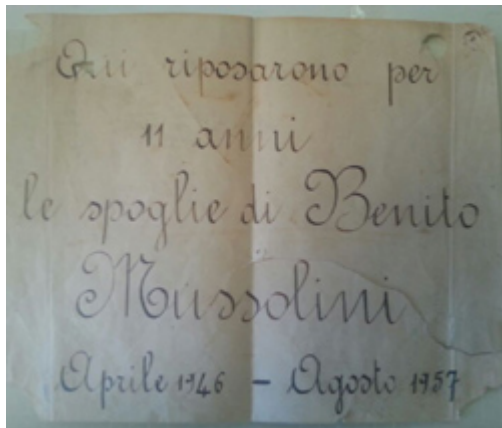 Qui riposarono per
11 anni
le spoglie di Benito
Mussolini
Aprile 1946 - Agosto 1957